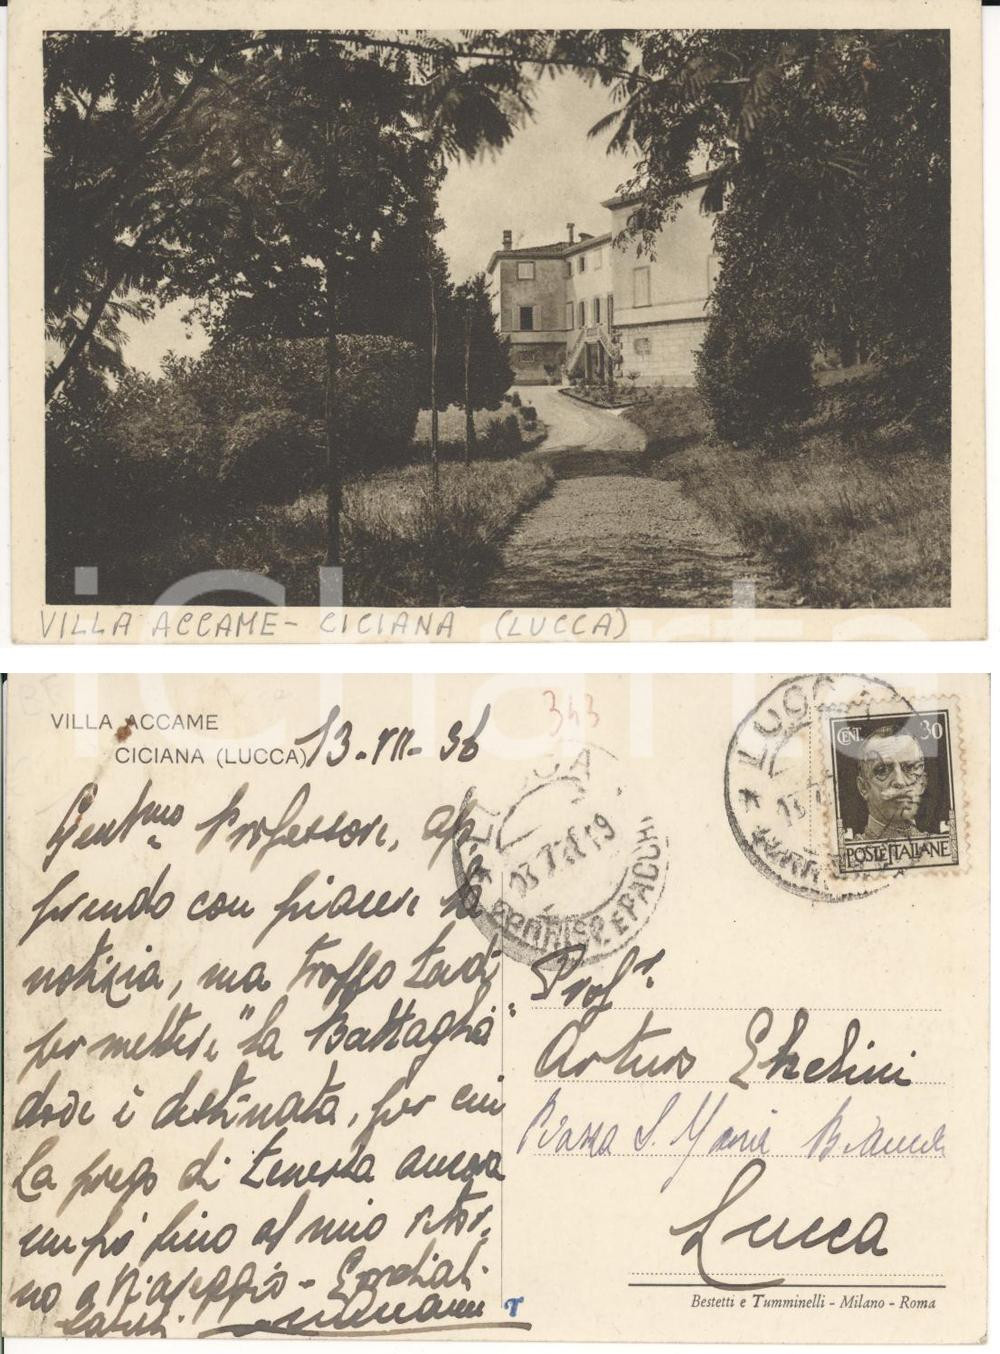 VILLA ACCAME - CICIANA (LUCCA)
iCharta
VILLA ACCAME
CICIANA (LUCCA) 13-VII-36
343
Gent.mo Professore, ap
prendo con piacere la
notizia, ma troppo tardi
per mettere "la Battaglia"
dove è destinata, per cui
la prego di tenerla ancora
un pò fino al mio ritor
no a Viareggio - Cordiali
saluti
LUCCA
CORRISP. E PACCHI
LUCCA
CENT. 30
POSTE ITALIANE
Prof.r
Arturo
Piazza S. Maria Bianca
Lucca
Bestetti e Tumminelli - Milano - Roma